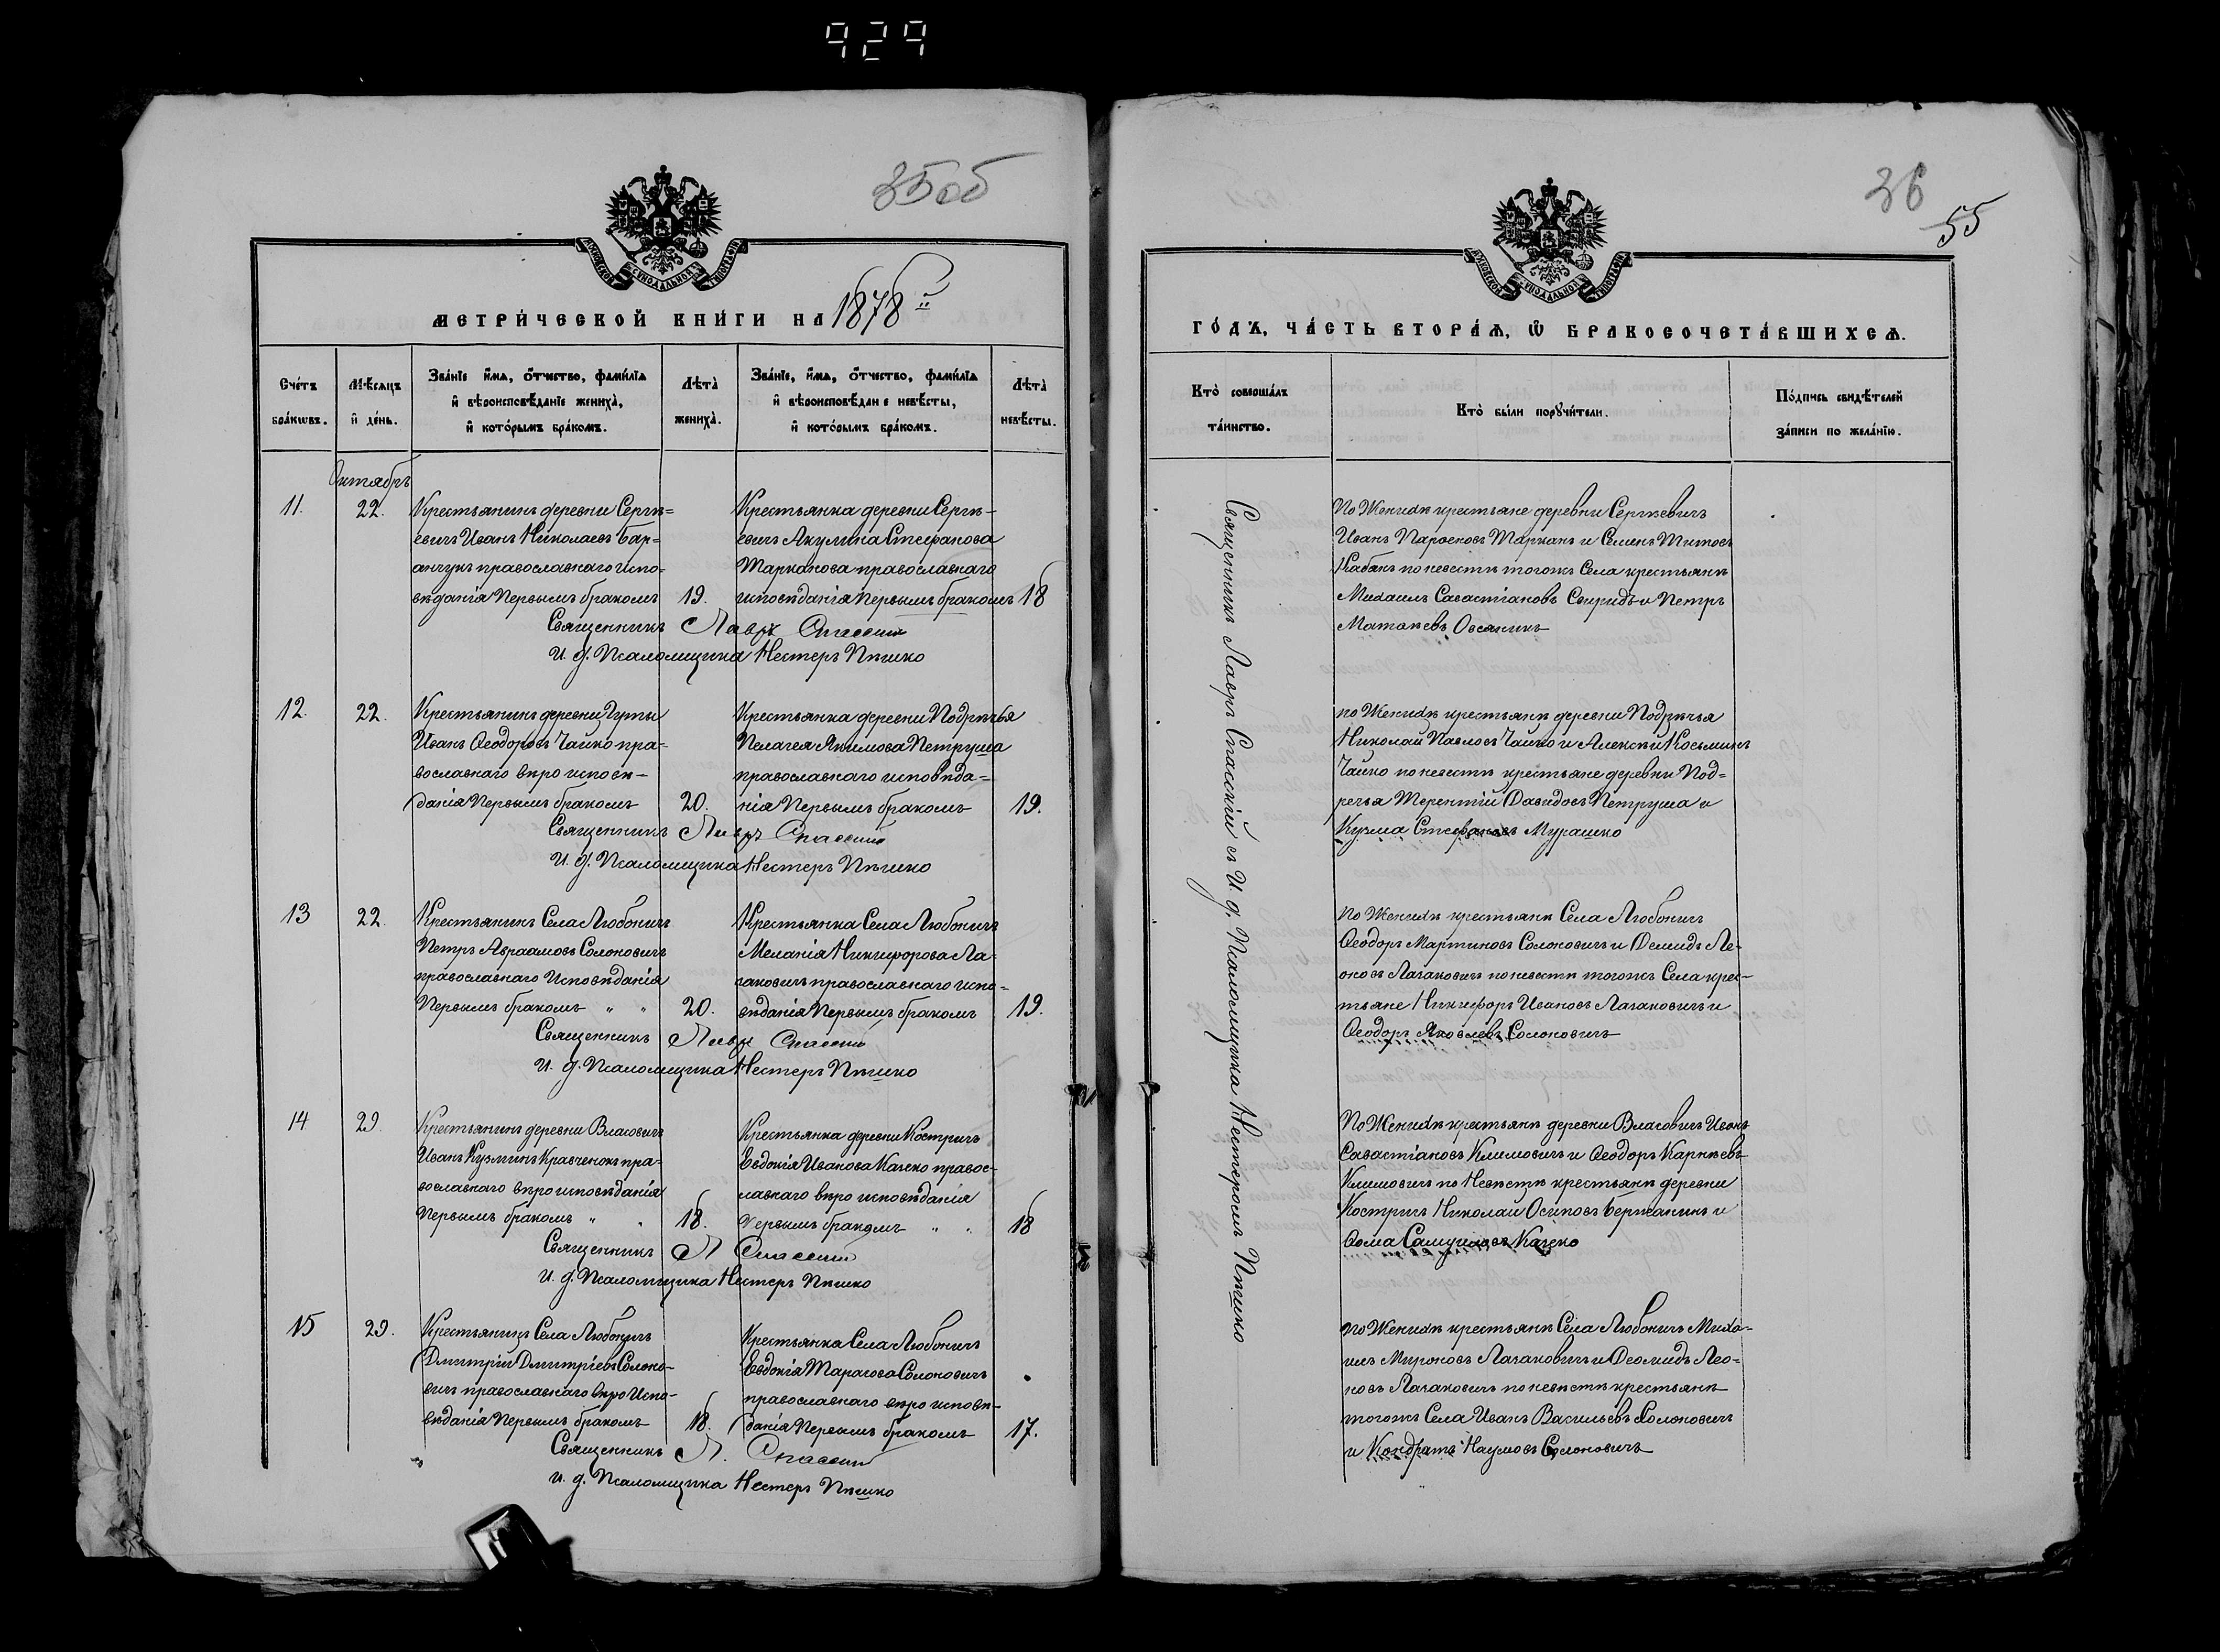 929
35 об
МЕТРИ́ЧЕСКОЙ КНИ́ГИ НА 1878 й
Сче́тъ бра́ковъ.
Мѣ́сяцъ и҆ де́нь.
Зва́нїе и҆́мѧ, ѻ҆́тчество, фами́лїѧ
и҆ вѣроисповѣ́данїе жениха̀,
и҆ кото́рымъ бра́комъ.
Лѣ̀та жениха̀.
Зва́нїе, и҆́мѧ, ѻ҆́тчество, фами́лїѧ
и҆ вѣроисповѣ́данїе невѣ́сты,
и҆ кото́рымъ бра́комъ.
Лѣ̀та невѣ́сты.
Октябрь
11. 22.
Крестьянинъ деревни Сергѣ=
евичъ Иванъ Николаевъ Бар=
анчукъ православнаго испо=
вѣданія Первымъ бракомъ 19.
Крестьянка деревни Сергѣ-
евичъ Акулина Стефанова
Тарканова православнаго
исповѣданія Первымъ бракомъ 18
Священникъ Лавръ Спасскій
И. д. Псаломщика Нестеръ Пѣшко
12. 22.
Крестьянинъ деревни Гуты
Иванъ Ѳеодоровъ Чайко пра=
вославнаго вѣро исповѣ-
данія Первымъ бракомъ 20.
Крестьянка деревни Подрѣчья
Пелагея Якимова Петруша
православнаго исповѣда=
нія Первымъ бракомъ 19.
Священникъ Лавръ Спасскій
И. д. Псаломщика Нестеръ Пѣшко
13 22.
Крестьянинъ Села Любоничъ
Петръ Авраамовъ Солоновичъ
православнаго Исповѣданія
Первымъ бракомъ " " 20.
Крестьянка Села Любоничъ
Меланія Никифорова Ла-
гаковичъ православнаго испо=
вѣданія Первымъ бракомъ 19.
Священникъ Лавръ Спасскій
И. д. Псаломщика Нестеръ Пѣшко
14 29.
Крестьянинъ деревни Власовичъ
Иванъ Кузминъ Кравченокъ пра=
вославнаго вѣро исповѣданія
Первымъ бракомъ " " 18.
Крестьянка деревни Костричъ
Евдокія Иванова Качко правос-
лавнаго вѣро исповѣданія
Первымъ бракомъ " " 18
Священникъ Л Спасскій
И. д. Псаломщика Нестеръ Пѣшко
15 29.
Крестьянинъ Села Любоничъ
Дмитрій Дмитріевъ Солоно-
вичъ православнаго вѣро Испо-
вѣданія Первымъ бракомъ 18.
Крестьянка Села Любоничъ
Евдокія Тарасова Солоновичъ
православнаго вѣро исповѣ-
данія Первымъ бракомъ 17.
Священникъ Л. Спасскій
И. д. Псаломщика Нестеръ Пѣшко
36
55
ГО́ДЪ, ЧА́СТЬ ВТОРА́Ѧ, Ѡ҆ БРАКОСОЧЕТА́ВШИХСѦ.
Кто̀ соверша́лъ
та́инство.
Кто̀ бы́ли порꙋчи́тели.
По́дпись свидѣ́телей
за́писи по жела́нїю.
Священникъ Лавръ Спасскій съ И. д. Псаломщика Нестеромъ Пѣшко
По Женихѣ крестьяне деревни Сергѣевичъ
Иванъ Парѳеновъ Тарканъ и Семенъ Титовъ
Кабакъ по невестѣ тогожъ Села крестьянѣ
Михаилъ Савастіановъ Свиридъ и Петръ
Матвѣевъ Овсяникъ
по Женихѣ крестьянѣ деревни Подрѣчья
Николай Павловъ Чайко и Алексѣй Косьминъ
Чайко по невестѣ крестьяне деревни Под=
речья Терентій Давидовъ Петруша и
Кузма Стефановъ Мурашко
по Женихѣ крестьянѣ Села Любоничъ
Ѳеодоръ Мартиновъ Солоновичъ и Демидъ Ле-
оновъ Лагаковичъ по невестѣ тогожъ Села крес-
тьяне Никифоръ Ивановъ Лагаковичъ и
Ѳеодоръ Яковлевъ Солоновичъ
По Женихѣ крестьянѣ деревни Власовичъ Иванъ
Савастіановъ Климовичъ и Ѳеодоръ Карнѣевъ
Климовичъ по Невѣстѣ крестьянѣ деревни
Костричъ Николай Осиповъ Бержанинъ и
Ѳома Самуиловъ Качко
по Женихѣ крестьянѣ Села Любоничъ Миха-
илъ Мироновъ Лагаковичъ и Деомидъ Лео=
новъ Лагаковичъ по невѣстѣ крестьянѣ
тогожъ Села Иванъ Васильевъ Солоновичъ
и Кондратъ Наумовъ Солоновичъ